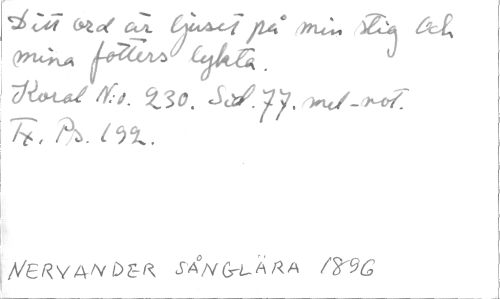 Ditt ord är ljuset på min stig och
mina fötters lykta.
Koral N:o. 230. Sid. 77. mel-not.
Tx. Ps. 192.
NERVANDER SÅNGLÄRA 1896